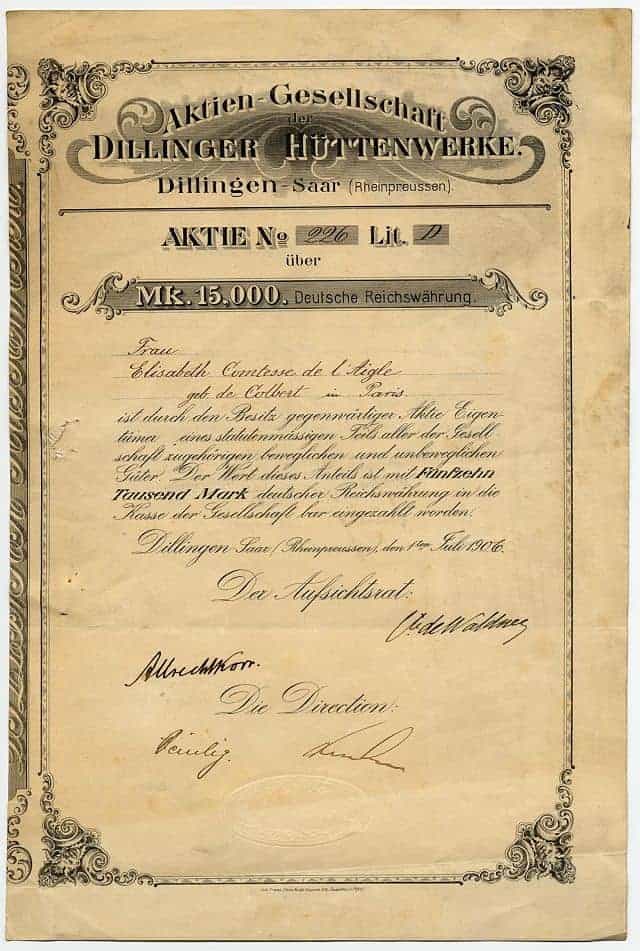 Aktien-Gesellschaft
der
DILLINGER HÜTTENWERKE.
Dillingen-Saar (Rheinpreussen).
AKTIE No 226 Lit. D
über
Mk. 15,000. Deutsche Reichswährung.
Frau
Elisabeth Comtesse de l'Aigle
geb. de Colbert in Paris
ist durch den Besitz gegenwärtiger Aktie Eigen-
tümer eines statutenmässigen Teils aller der Gesell-
schaft zugehörigen beweglichen und unbeweglichen
Güter. Der Wert dieses Anteils ist mit Fünfzehn
Tausend Mark deutscher Reichswährung in die
Kasse der Gesellschaft bar eingezahlt worden.
Dillingen-Saar (Rheinpreussen), den 1ten Juli 1906.
Der Aufsichtsrat:
de Waldner
Die Direction: